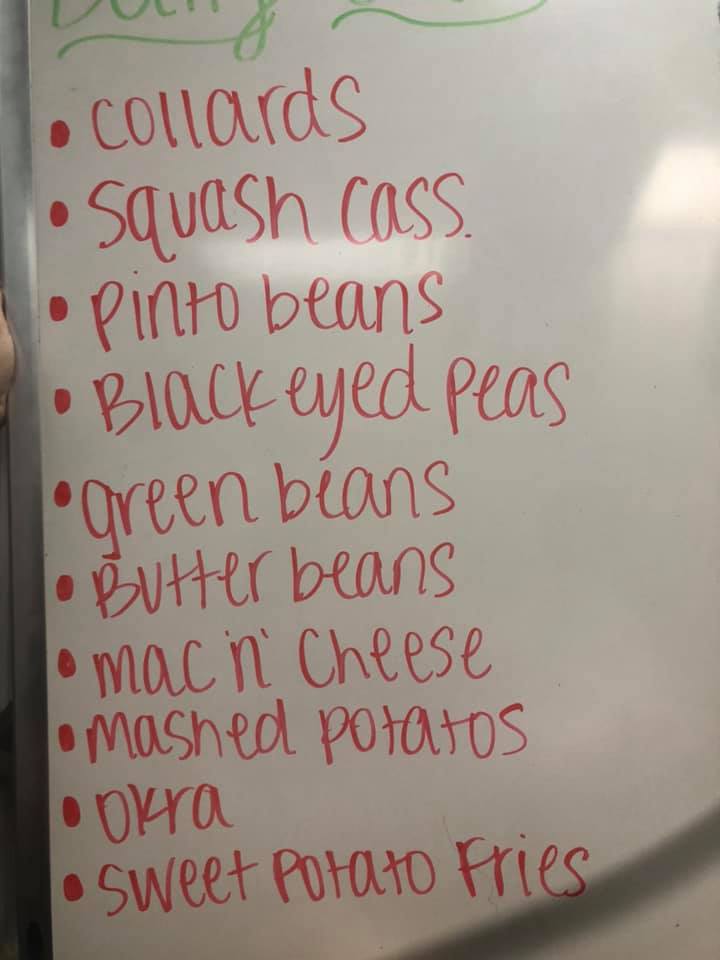 • Collards
• Squash Cass.
• Pinto beans
• Black eyed Peas
• green beans
• Butter beans
• mac n' Cheese
• mashed Potatos
• Okra
• Sweet Potato Fries